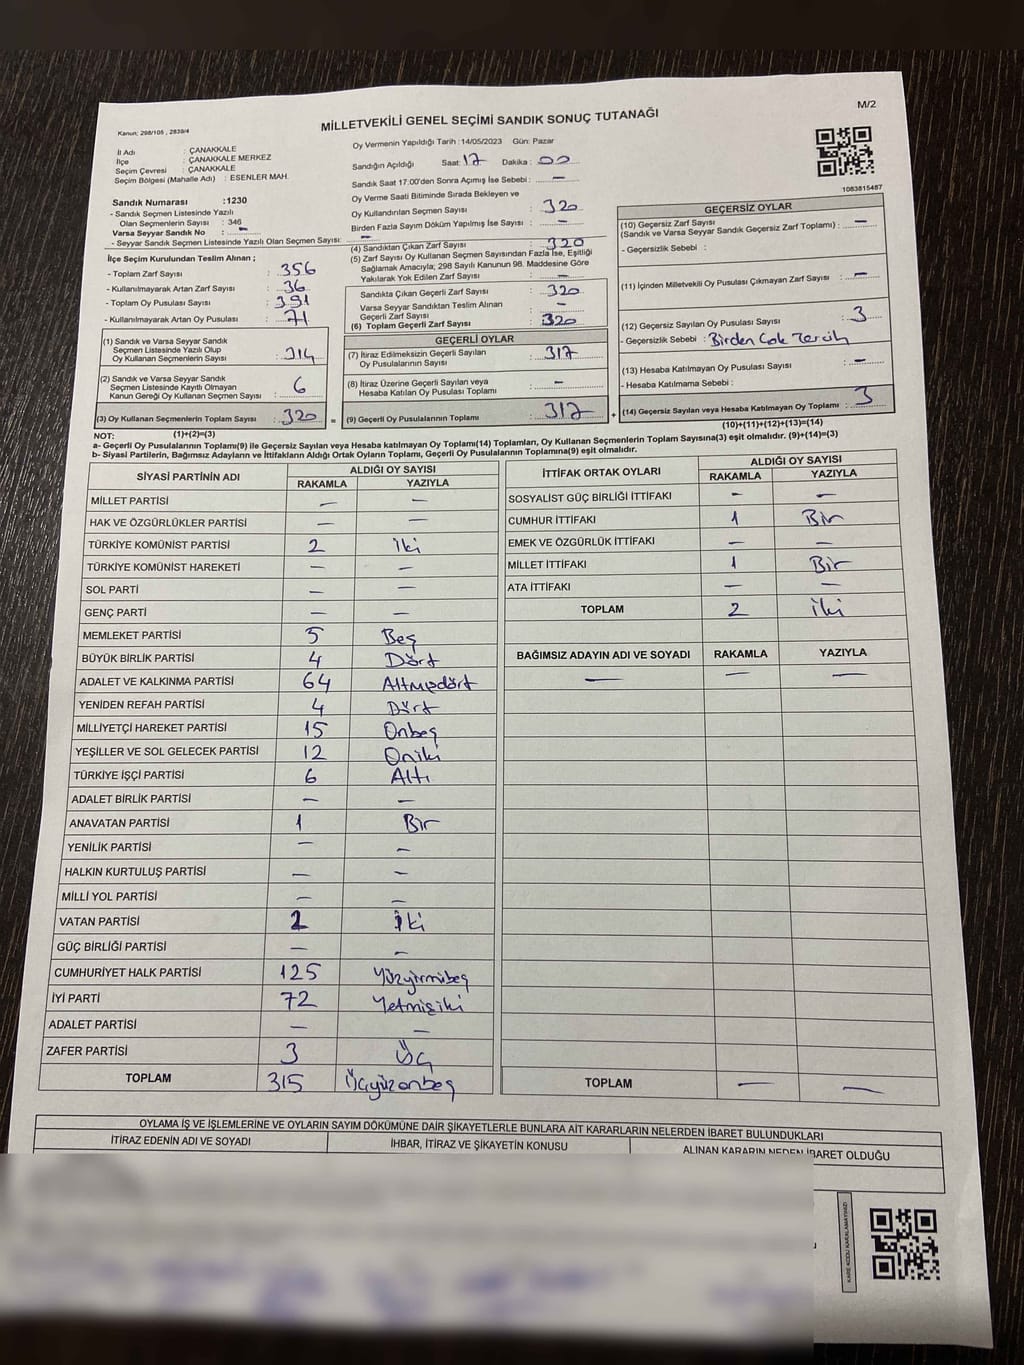 M/2
MİLLETVEKİLİ GENEL SEÇİMİ SANDIK SONUÇ TUTANAĞI
Kanun; 298/105 , 2839/4
İl Adı : ÇANAKKALE
İlçe : ÇANAKKALE MERKEZ
Seçim Çevresi : ÇANAKKALE
Seçim Bölgesi (Mahalle Adı) : ESENLER MAH.
Sandık Numarası :1230
- Sandık Seçmen Listesinde Yazılı
Olan Seçmenlerin Sayısı : 346
Varsa Seyyar Sandık No : –
- Seyyar Sandık Seçmen Listesinde Yazılı Olan Seçmen Sayısı: –
İlçe Seçim Kurulundan Teslim Alınan ;
- Toplam Zarf Sayısı : 356
- Kullanılmayarak Artan Zarf Sayısı : 36
- Toplam Oy Pusulası Sayısı : 391
- Kullanılmayarak Artan Oy Pusulası : 71
(1) Sandık ve Varsa Seyyar Sandık
Seçmen Listesinde Yazılı Olup
Oy Kullanan Seçmenlerin Sayısı : 314
(2) Sandık ve Varsa Seyyar Sandık
Seçmen Listesinde Kayıtlı Olmayan
Kanun Gereği Oy Kullanan Seçmen Sayısı : 6
(3) Oy Kullanan Seçmenlerin Toplam Sayısı : 320 =
Oy Vermenin Yapıldığı Tarih :14/05/2023 Gün: Pazar
Sandığın Açıldığı Saat: 17 Dakika : 00
Sandık Saat 17:00'den Sonra Açılmış İse Sebebi : –
Oy Verme Saati Bitiminde Sırada Bekleyen ve
Oy Kullandırılan Seçmen Sayısı : 320
Birden Fazla Sayım Döküm Yapılmış İse Sayısı : –
(4) Sandıktan Çıkan Zarf Sayısı : 320
(5) Zarf Sayısı Oy Kullanan Seçmen Sayısından Fazla İse, Eşitliği
Sağlamak Amacıyla; 298 Sayılı Kanunun 98. Maddesine Göre
Yakılarak Yok Edilen Zarf Sayısı : –
Sandıkta Çıkan Geçerli Zarf Sayısı : 320
Varsa Seyyar Sandıktan Teslim Alınan
Geçerli Zarf Sayısı : –
(6) Toplam Geçerli Zarf Sayısı : 320
GEÇERLİ OYLAR
(7) İtiraz Edilmeksizin Geçerli Sayılan
Oy Pusulasının Sayısı : 317
(8) İtiraz Üzerine Geçerli Sayılan veya
Hesaba Katılan Oy Pusulası Toplamı : –
(9) Geçerli Oy Pusulalarının Toplamı : 317 +
1083815487
GEÇERSİZ OYLAR
(10) Geçersiz Zarf Sayısı
(Sandık ve Varsa Seyyar Sandık Geçersiz Zarf Toplamı) : –
- Geçersizlik Sebebi :
(11) İçinden Milletvekili Oy Pusulası Çıkmayan Zarf Sayısı : –
(12) Geçersiz Sayılan Oy Pusulası Sayısı : 3
- Geçersizlik Sebebi : Birden Çok Tercih
(13) Hesaba Katılmayan Oy Pusulası Sayısı : –
- Hesaba Katılmama Sebebi :
(14) Geçersiz Sayılan veya Hesaba Katılmayan Oy Toplamı : 3
(10)+(11)+(12)+(13)=(14)
NOT: (1)+(2)=(3)
a- Geçerli Oy Pusulalarının Toplamı(9) ile Geçersiz Sayılan veya Hesaba katılmayan Oy Toplamı(14) Toplamları, Oy Kullanan Seçmenlerin Toplam Sayısına(3) eşit olmalıdır. (9)+(14)=(3)
b- Siyasi Partilerin, Bağımsız Adayların ve İttifakların Aldığı Oyların Toplamı, Geçerli Oy Pusulalarının Toplamına(9) eşit olmalıdır.
SİYASİ PARTİNİN ADI ALDIĞI OY SAYISI
RAKAMLA YAZIYLA
MİLLET PARTİSİ – –
HAK VE ÖZGÜRLÜKLER PARTİSİ – –
TÜRKİYE KOMÜNİST PARTİSİ 2 iki
TÜRKİYE KOMÜNİST HAREKETİ – –
SOL PARTİ – –
GENÇ PARTİ – –
MEMLEKET PARTİSİ 5 Beş
BÜYÜK BİRLİK PARTİSİ 4 Dört
ADALET VE KALKINMA PARTİSİ 64 Altmışdört
YENİDEN REFAH PARTİSİ 4 Dört
MİLLİYETÇİ HAREKET PARTİSİ 15 Onbeş
YEŞİLLER VE SOL GELECEK PARTİSİ 12 Oniki
TÜRKİYE İŞÇİ PARTİSİ 6 Altı
ADALET BİRLİK PARTİSİ – –
ANAVATAN PARTİSİ 1 Bir
YENİLİK PARTİSİ – –
HALKIN KURTULUŞ PARTİSİ – –
MİLLİ YOL PARTİSİ – –
VATAN PARTİSİ 2 İki
GÜÇ BİRLİĞİ PARTİSİ – –
CUMHURİYET HALK PARTİSİ 125 Yüzyirmibeş
İYİ PARTİ 72 Yetmişiki
ADALET PARTİSİ – –
ZAFER PARTİSİ 3 Üç
TOPLAM 315 Üçyüzonbeş
İTTİFAK ORTAK OYLARI ALDIĞI OY SAYISI
RAKAMLA YAZIYLA
SOSYALİST GÜÇ BİRLİĞİ İTTİFAKI – –
CUMHUR İTTİFAKI 1 Bir
EMEK VE ÖZGÜRLÜK İTTİFAKI – –
MİLLET İTTİFAKI 1 Bir
ATA İTTİFAKI – –
TOPLAM 2 iki
BAĞIMSIZ ADAYIN ADI VE SOYADI RAKAMLA YAZIYLA
– – –
TOPLAM – –
OYLAMA İŞ VE İŞLEMLERİNE VE OYLARIN SAYIM DÖKÜMÜNE DAİR ŞİKAYETLERLE BUNLARA AİT KARARLARIN NELERDEN İBARET BULUNDUKLARI
İTİRAZ EDENİN ADI VE SOYADI İHBAR, İTİRAZ VE ŞİKAYETİN KONUSU ALINAN KARARIN NEDEN İBARET OLDUĞU
KARE KODU KARALAMAYINIZ!